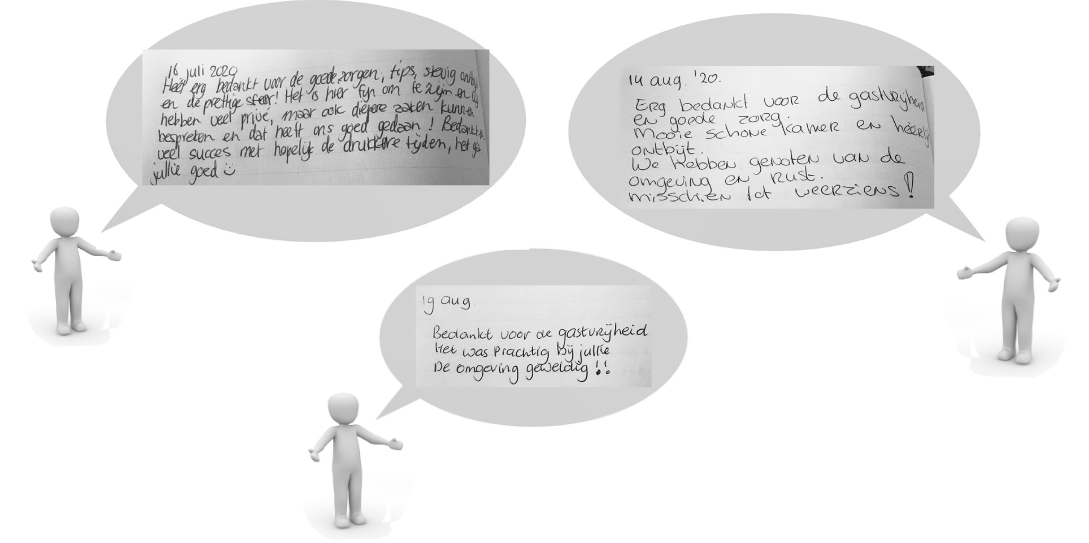 16 juli 2020
Heel erg bedankt voor de goede zorgen, tips, stevig
en de prettige sfeer! Het is hier fijn om te zijn en
hebben veel privé, maar ook diepere zaken kunnen
bespreken en dat heeft ons goed gedaan! Bedankt
veel succes met hopelijk de drukkere tijden, het
jullie goed ☺
14 aug. '20.
Erg bedankt voor de gastvrijheid
en goede zorg.
Mooie schone kamer en
ontbijt.
We hebben genoten van de
omgeving en rust.
misschien tot weerziens!
19 aug
Bedankt voor de gastvrijheid
Het was Prachtig bij jullie
De omgeving geweldig !!